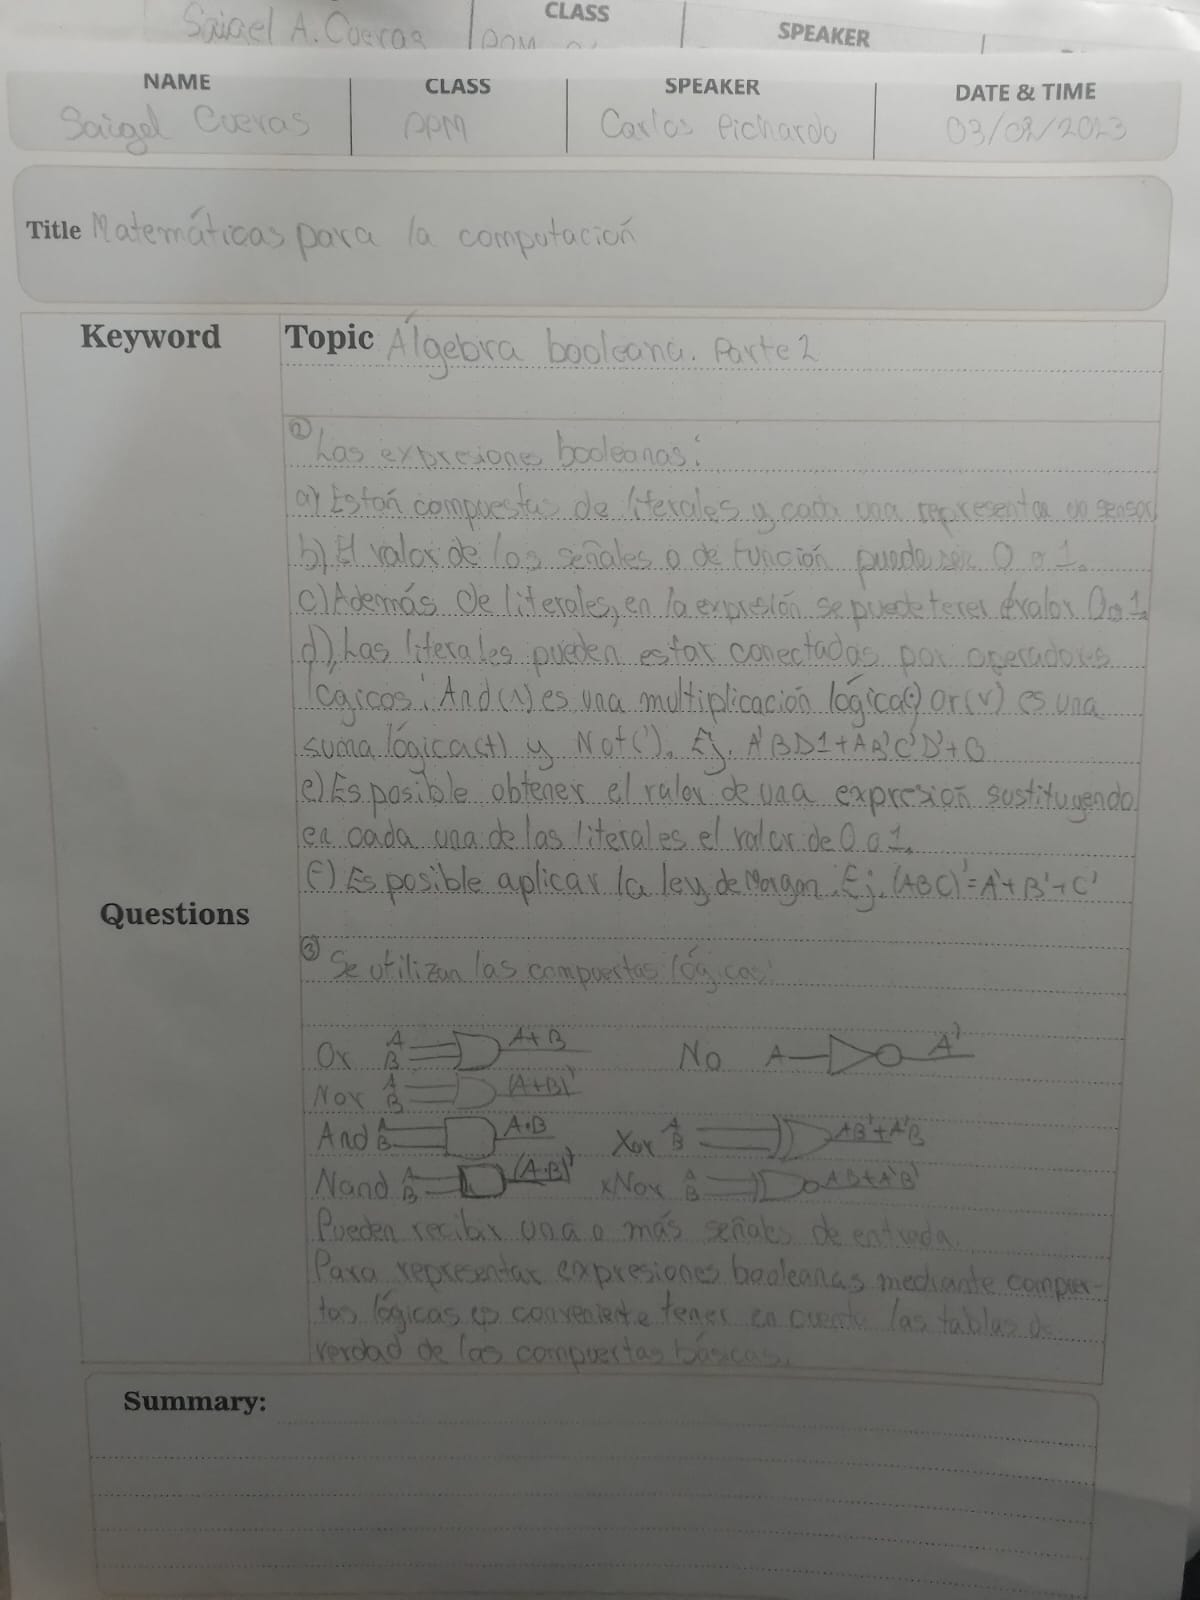 Saigel A. Cuevas
CLASS
SPEAKER
NAME
CLASS
SPEAKER
DATE & TIME
Saigel Cuevas
PPM
Carlos Pichardo
03/02/2023
Title Matemáticas para la computación
Keyword
Topic Álgebra booleana. Parte 2
② Las expresiones booleanas:
a) Están compuestas de literales y cada una representan un sensor
b) El valor de los señales o de función puede ser 0 o 1.
c) Además de literales, en la expresión se puede tener el valor 0 o 1.
d) Las literales pueden estar conectadas por operadores
lógicos: And (∧) es una multiplicación lógica(·) or (v) es una
suma lógica (+) y Not('). Ej. A'BD1+AB'C'D'+0
e) Es posible obtener el valor de una expresión sustituyendo
en cada una de las literales el valor de 0 o 1.
f) Es posible aplicar la ley de Morgan. Ej. (ABC)'=A'+B'+C'
Questions
③ Se utilizan las compuertas lógicas:
Or A B A+B No A A'
Nor A B (A+B)'
And A B A·B Xor A B AB'+A'B
Nand A B (A·B)' xNor A B AB+A'B'
Pueden recibir una o más señales de entrada.
Para representar expresiones booleanas mediante compuer-
tas lógicas es conveniente tener en cuenta las tablas de
verdad de las compuertas básicas.
Summary: